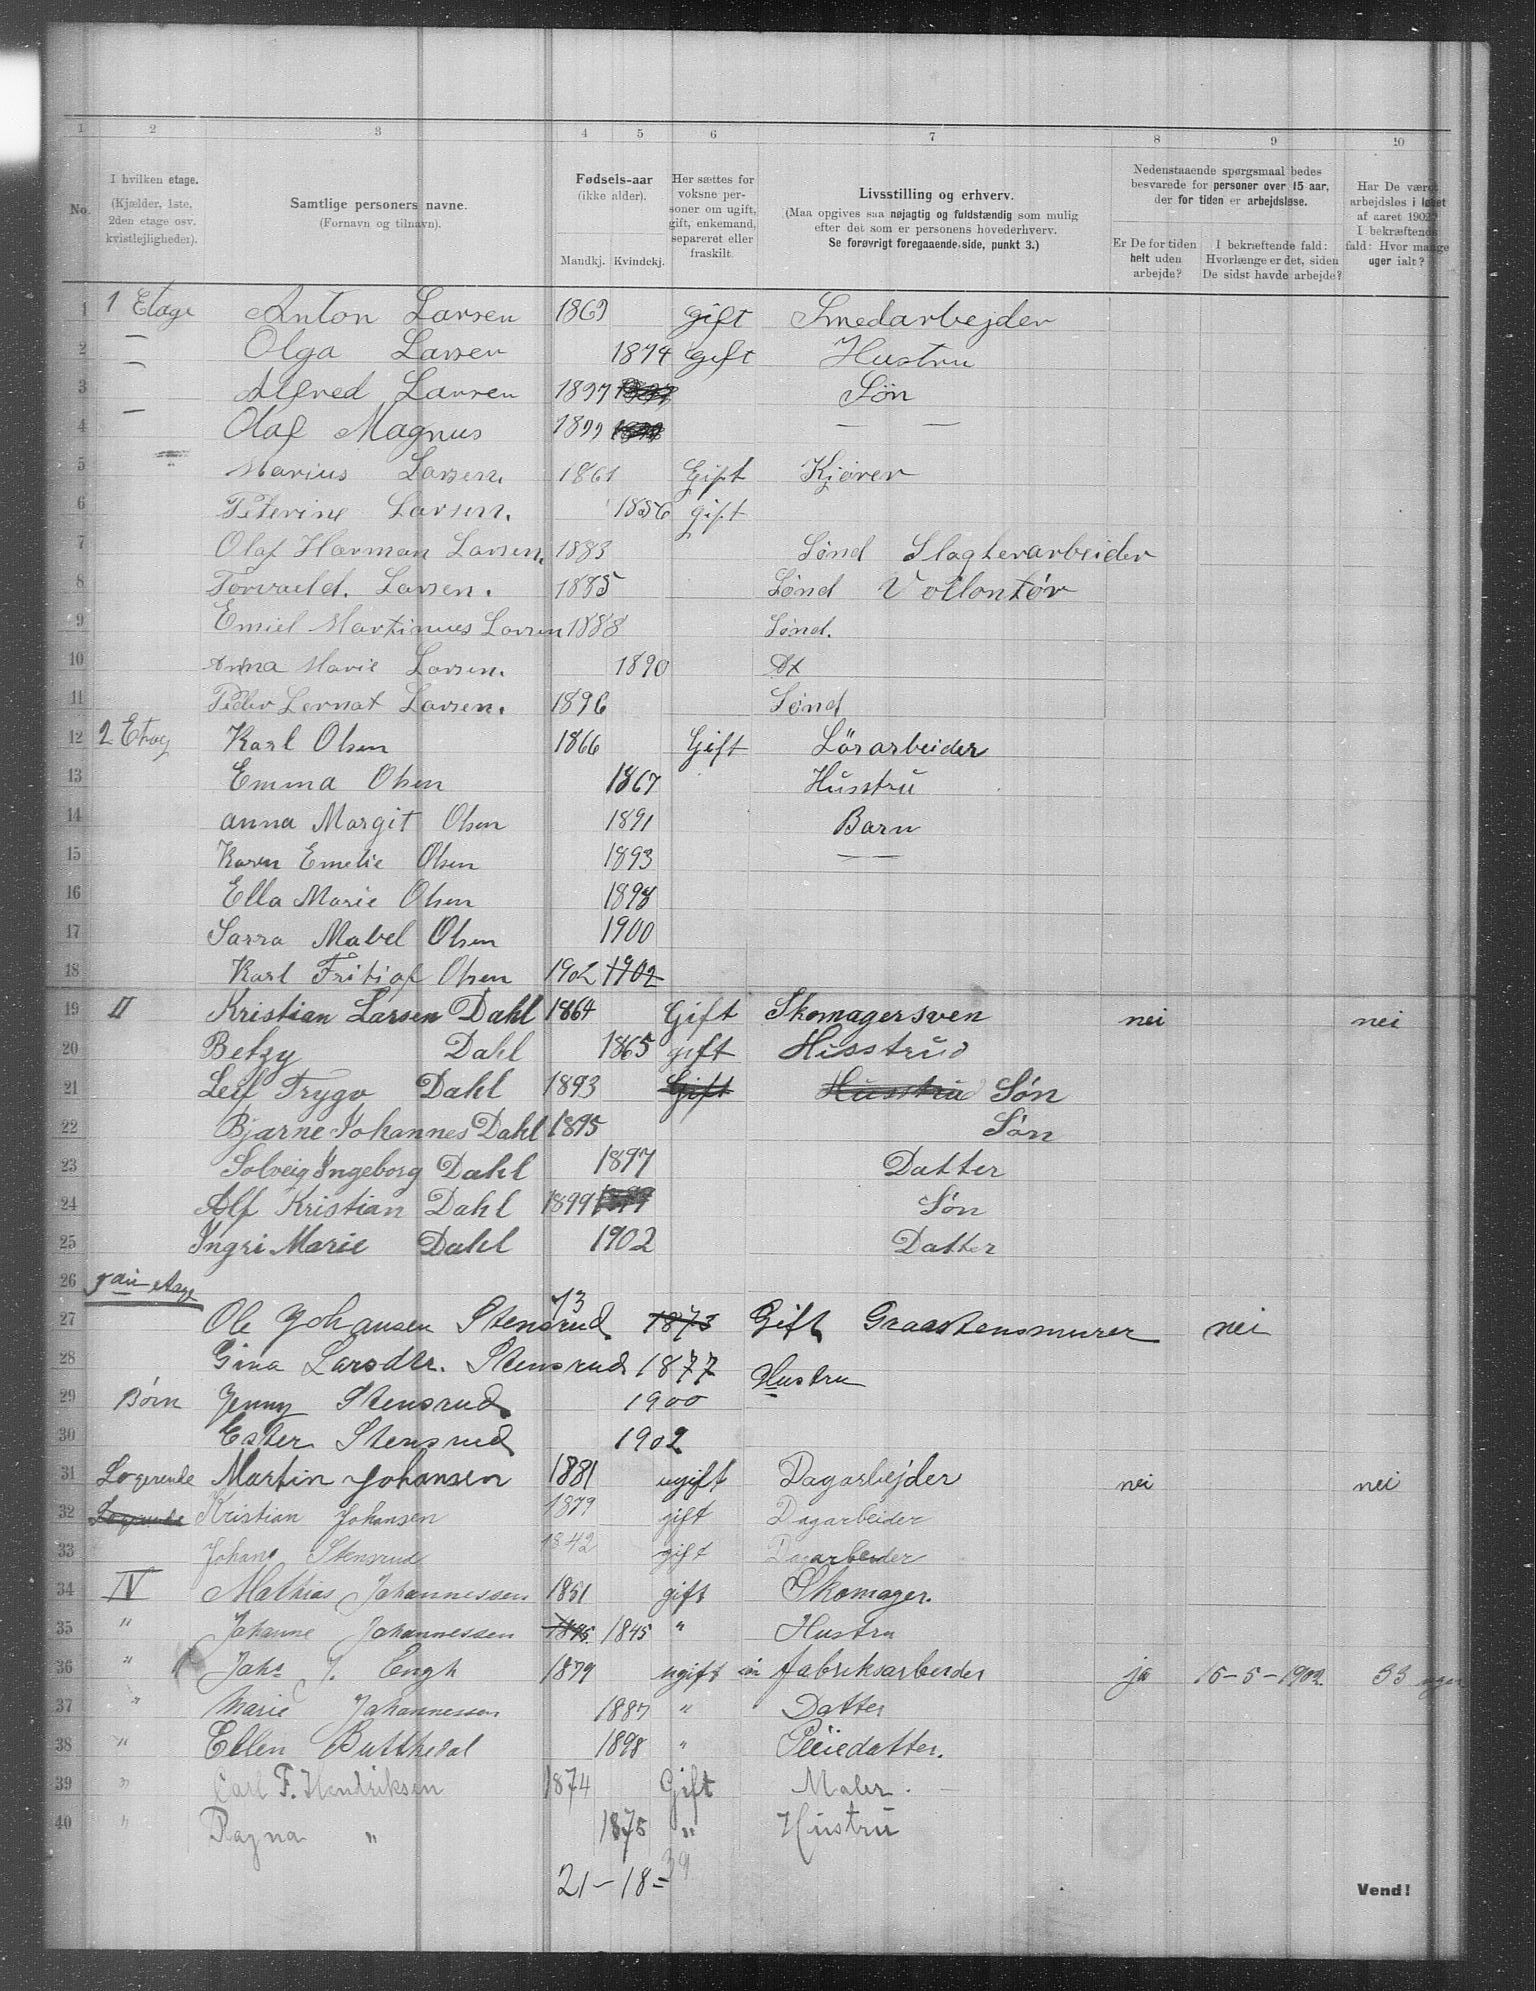 1 2 3 4 5 6 7 8 9 10
No.
I hvilken etage.
(Kjælder, 1ste,
2den etage osv.
kvistlejligheder).
Samtlige personers navne.
(Fornavn og tilnavn).
Fødsels-aar
(ikke alder).
Mandkj. Kvindekj.
Her sættes for
voksne per-
soner om ugift,
gift, enkemand,
separeret eller
fraskilt.
Livsstilling og erhverv.
(Maa opgives saa nøjagtig og fuldstændig som mulig
efter det som er personens hovederhverv.
Se forøvrigt foregaaende side, punkt 3.)
Nedenstaaende spørgsmaal bedes
besvarede for personer over 15 aar,
der for tiden er arbejdsløse.
Er De for tiden
helt uden
arbejde?
I bekræftende fald:
Hvorlænge er det, siden
De sidst havde arbejde?
Har De været
arbejdsløs i løbet
af aaret 1902?
I bekræftende
fald: Hvor mange
uger ialt?
1 1 Etage Anton Larsen 1869 gift Smedarbejder
2 — Olga Larsen 1874 gift Hustru
3 — Alfred Larsen 1897 Søn
4 — Olaf Magnus 1899 — —
5 Marius Larsen. 1861 Gift Kjører
6 Peterine Larsen. 1856 gift
7 Olaf Harman Larsen. 1883 Sønd Slagterarbeider
8 Torvald. Larsen. 1885 Sønd Vollontør
9 Emiel Martinues Larsen 1888 Sønd.
10 Anna Marie Larsen. 1890 Dt
11 Peder Lernat Larsen. 1896 Sønd
12 2 Etag Karl Olsen 1866 Gift Lørarbeider
13 Emma Olsen 1867 Husstru
14 anna Margit Olsen 1891 Barn
15 Karen Emelie Olsen 1893 —
16 Ella Marie Olsen 1898
17 Sarra Mabel Olsen 1900
18 Karl Fritiof Olsen 1902 1902
19 II Kristian Larsen Dahl 1864 Gift Skomagersven nei nei
20 Betzy Dahl 1865 gift Husstrud
21 Leif Trygv Dahl 1893 Gift Husstrud Søn
22 Bjarne Johannes Dahl 1895 Søn
23 Solveig Ingeborg Dahl 1897 Datter
24 Alf Kristian Dahl 1899 1899 Søn
25 Ingri Marie Dahl 1902 Datter
26 etage
27 Ole Johansen Stensrud 73 1873 Gift Graastensmurer nei
28 Gina Larsdtr. Stensrud 1877 Hustru
29 Børn Jenny Stensrud 1900
30 Ester Stensrud 1902
31 Logerende Martin Johansen 1881 ugift Dagarbejder nei nei
32 Logerende Kristian Johansen 1879 gift Dagarbeider
33 Johans Stensrud 1842 gift Dagarbeider
34 IV Mathias Johannessen 1851 gift Skomager.
35 " Johanne Johannessen 1845 1845 " Hustru
36 " Johs J. Engh 1879 ugift søn fabriksarbeider ja 15-5-1902 33 uger
37 " Marie Johannessen 1887 " Datter
38 " Ellen Butthedal 1898 " Pleiedatter.
39 " Carl F. Hendriksen 1874 Gift Maler.
40 " Ragna " 1875 " Hustru
21 - 18 = 39
Vend!